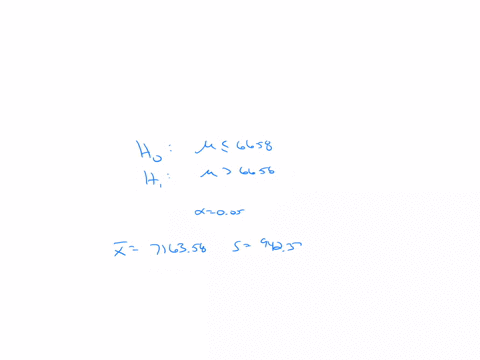 H₀: μ ≤ 6658
H₁: μ > 6658
α=0.05
x̄ = 7163.58 S=